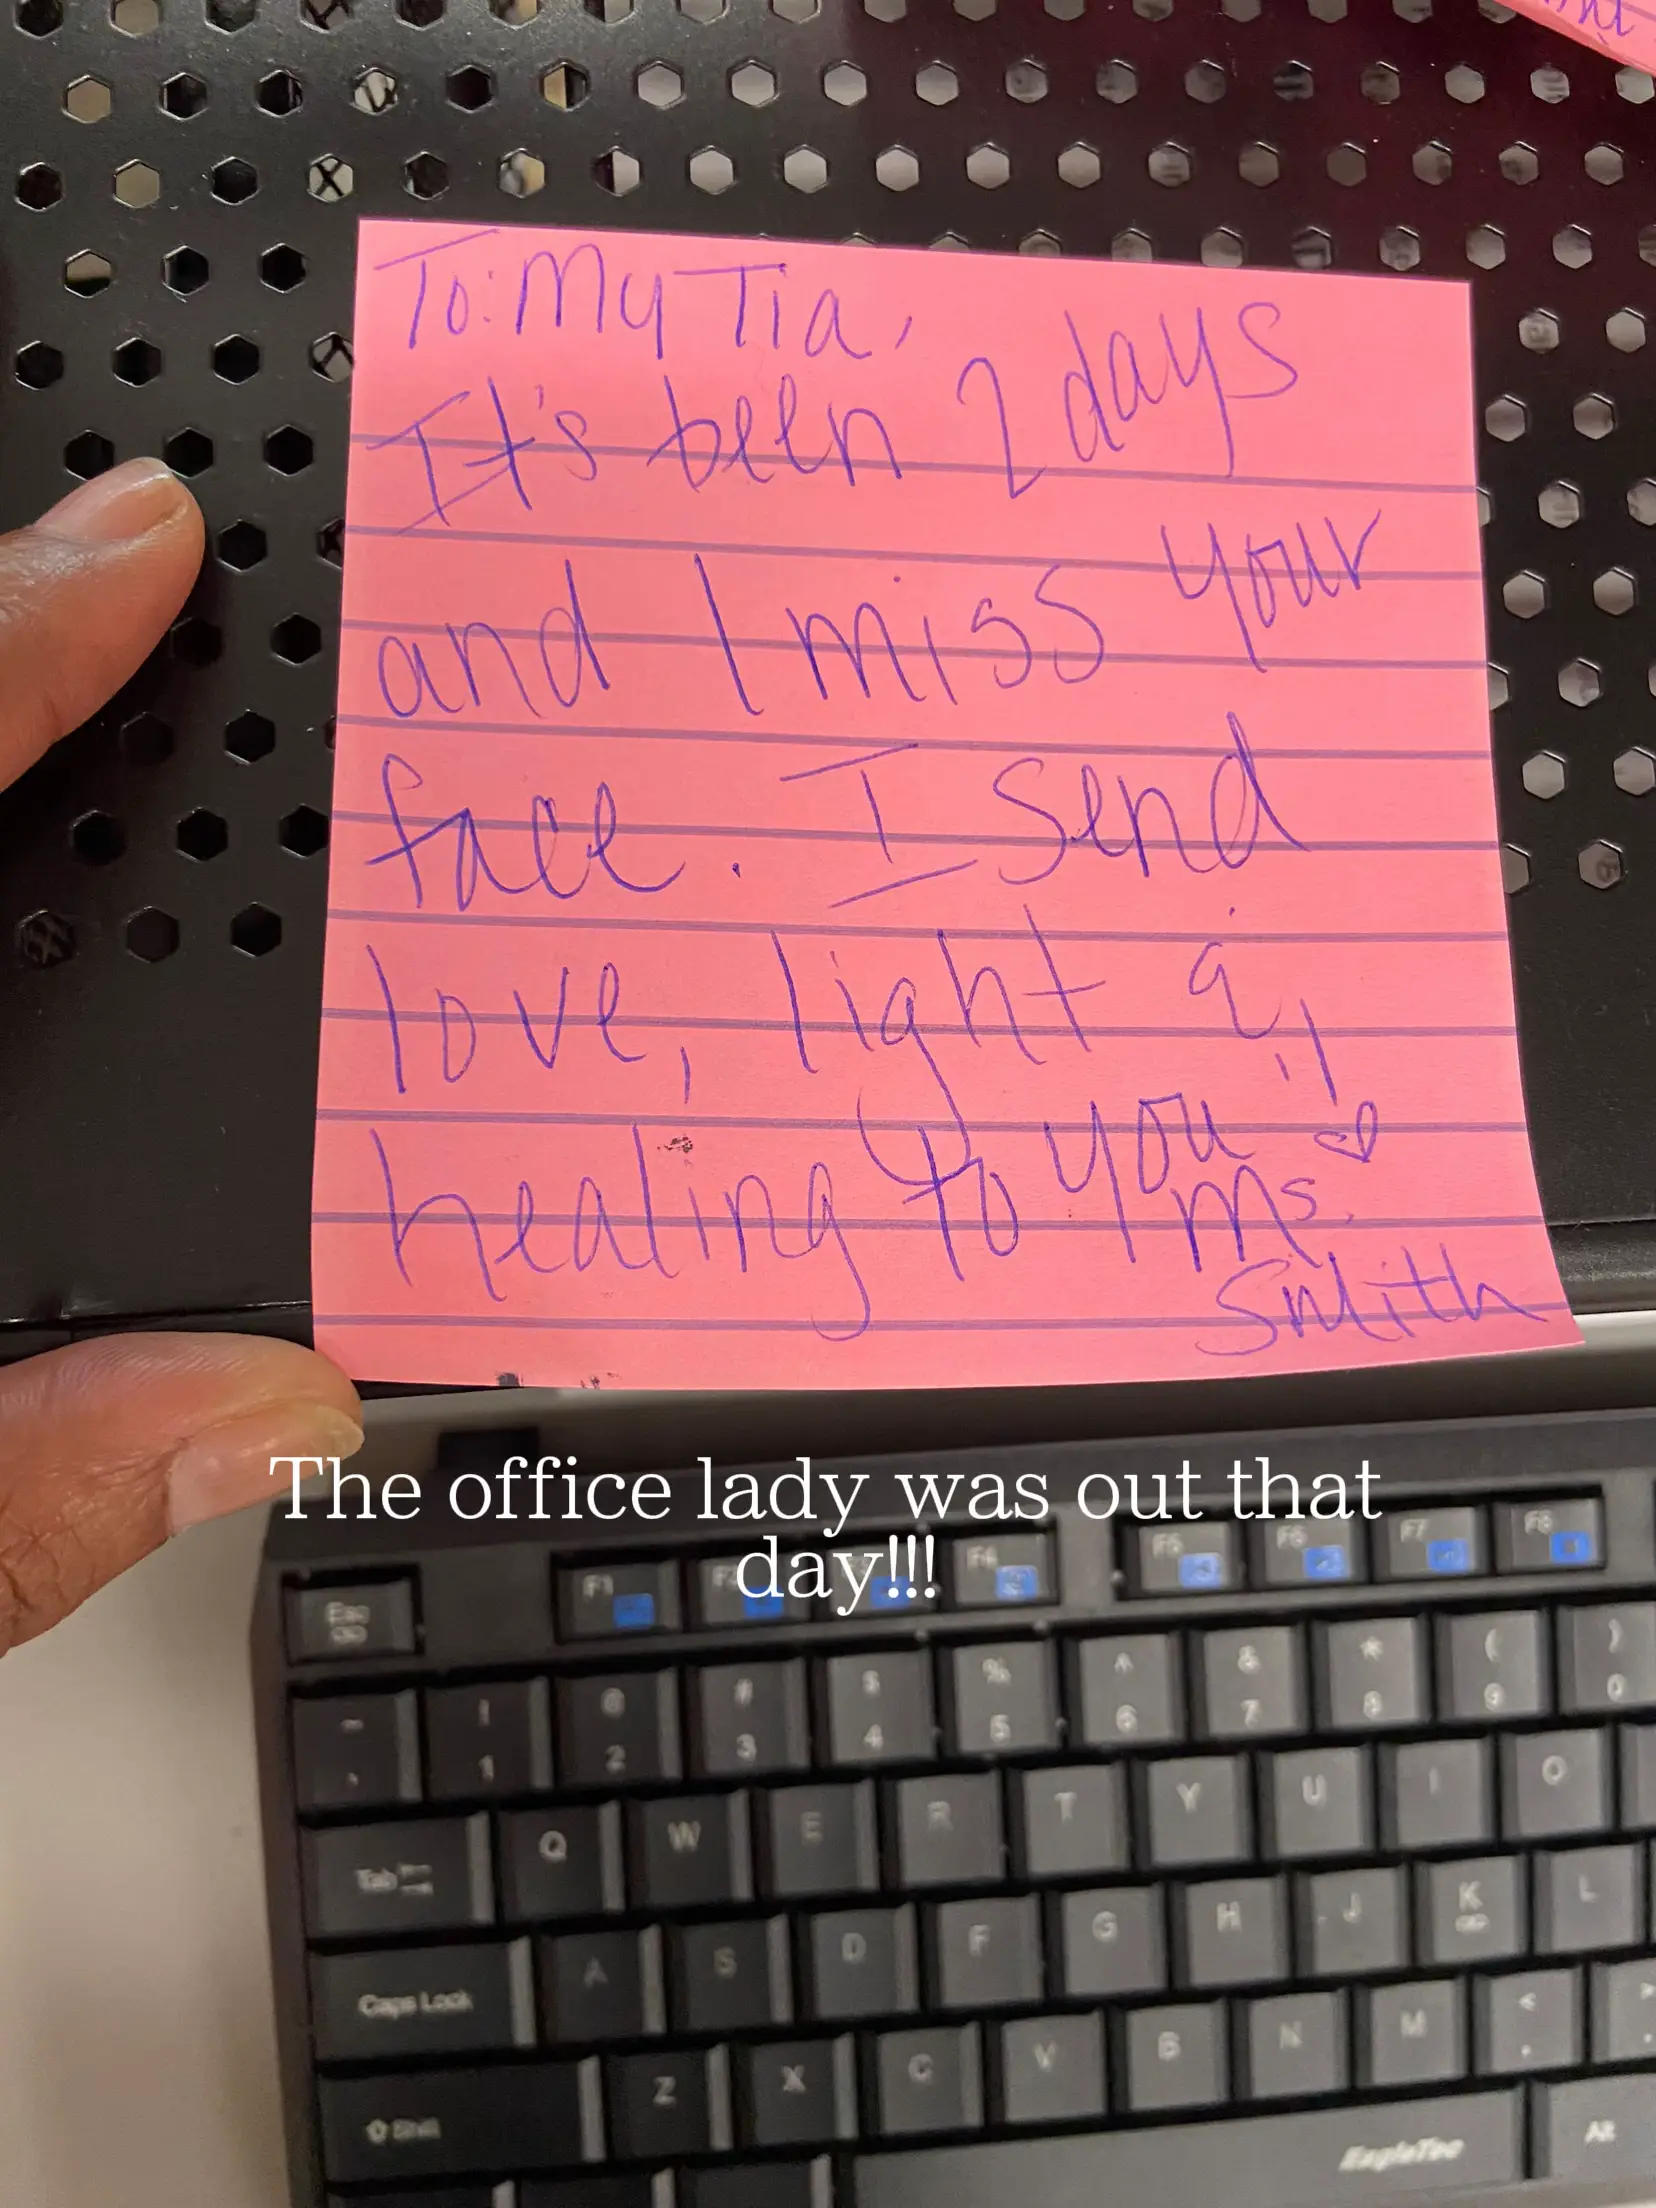 To: My Tia,
It's been 2 days
and I miss your
face. I send
love, light &
healing to you!!
Ms.
Smith
The office lady was out that
day!!!
Esc
F1
F4
F5
F6
F7
F8
~ ! @ # $ % ^ & * ( )
` 1 2 3 4 5 6 7 8 9 0
Tab Q W E R T Y U I O
Caps Lock A S D F G H J K L
Shift Z X C V B N M < >
, .
EagleTec Alt